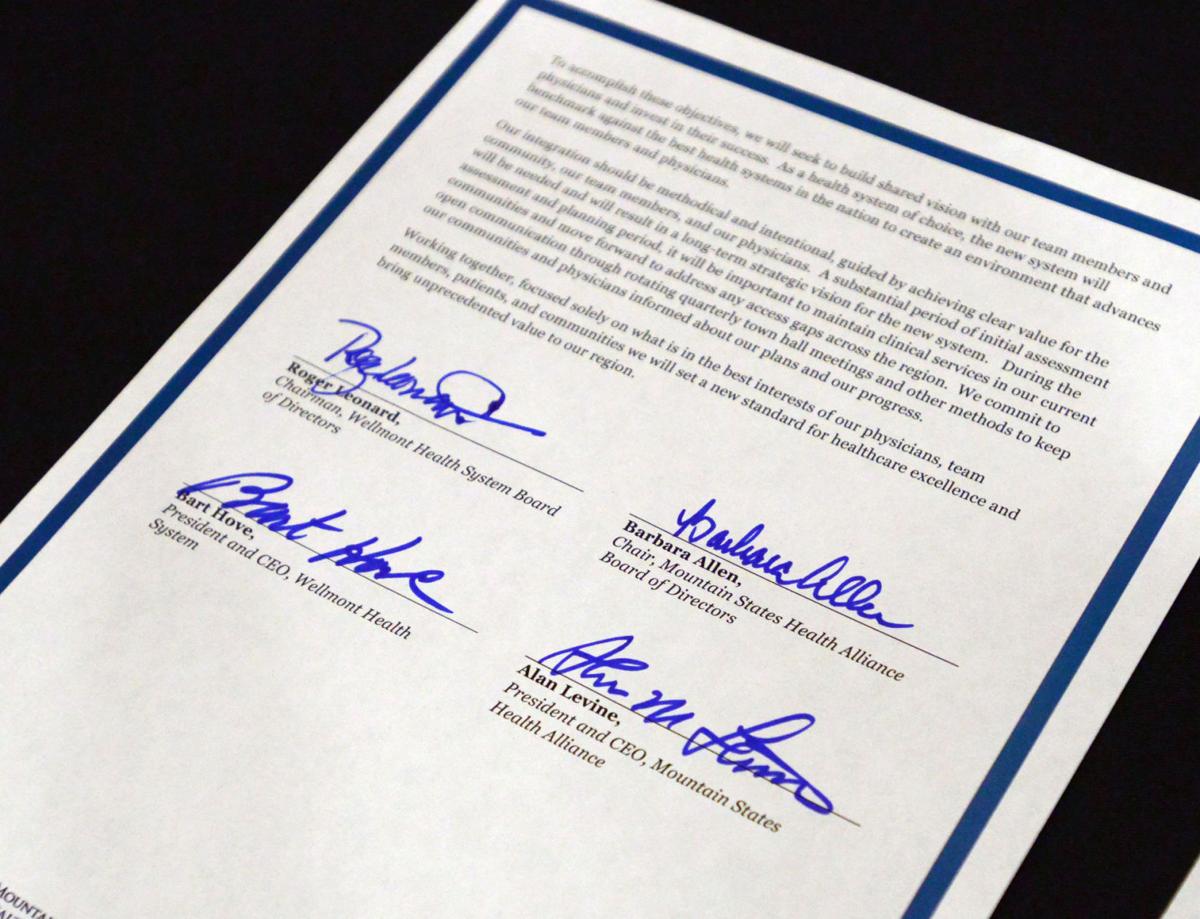 To accomplish these objectives, we will seek to build shared vision with our team members and
physicians and invest in their success. As a health system of choice, the new system will
benchmark against the best health systems in the nation to create an environment that advances
our team members and physicians.
Our integration should be methodical and intentional, guided by achieving clear value for the
community, our team members, and our physicians. A substantial period of initial assessment
will be needed and will result in a long-term strategic vision for the new system. During the
assessment and planning period, it will be important to maintain clinical services in our current
communities and move forward to address any access gaps across the region. We commit to
open communication through rotating quarterly town hall meetings and other methods to keep
our communities and physicians informed about our plans and our progress.
Working together, focused solely on what is in the best interests of our physicians, team
members, patients, and communities we will set a new standard for healthcare excellence and
bring unprecedented value to our region.
Roger Leonard,
Chairman, Wellmont Health System Board
of Directors
Bart Hove
Bart Hove,
President and CEO, Wellmont Health
System
Barbara Allen
Barbara Allen,
Chair, Mountain States Health Alliance
Board of Directors
Alan M Levine
Alan Levine,
President and CEO, Mountain States
Health Alliance